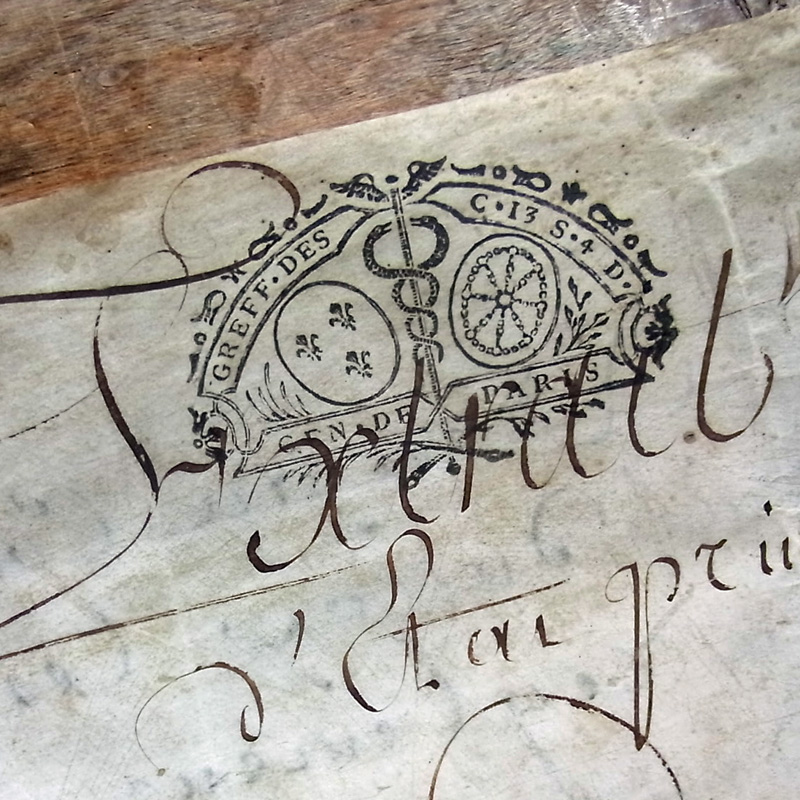 GREFF·DES C·13 S·4 D·
GEN·DE PARIS
Extrait
d'Etat